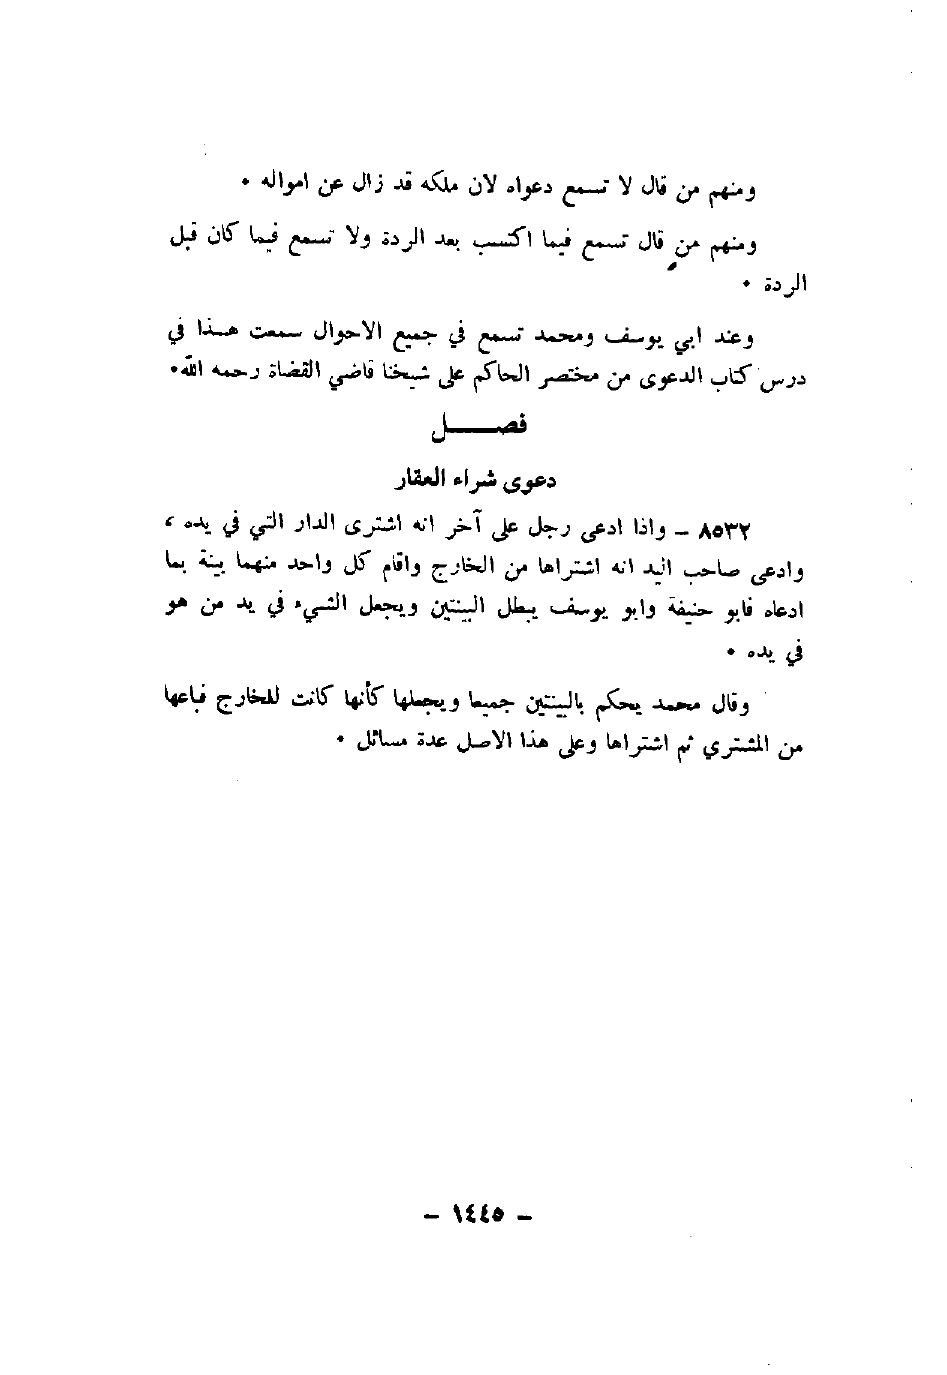 ومنهم من قال لا تسمع دعواه لان ملكه قد زال عن امواله ٠
ومنهم من قال تسمع فيما اكتسب بعد الردة ولا تسمع فيما كان قبل
الردة ٠
وعند ابي يوسف ومحمد تسمع في جميع الاحوال سمعت هــذا في
درس كتاب الدعوى من مختصر الحاكم على شيخنا قاضي القضاة رحمه الله٠
فصــــــل
دعوى شراء العقار
٨٥٣٢ – واذا ادعى رجل على آخر انه اشترى الدار التي في يده ،
وادعى صاحب اليد انه اشتراها من الخارج واقام كل واحد منهما بينة بما
ادعاه فابو حنيفة وابو يوسف يبطل البينتين ويجعل الشيء في يد من هو
في يده ٠
وقال محمد يحكم بالبينتين جميعا ويجعلها كأنها كانت للخارج فباعها
من المشتري ثم اشتراها وعلى هذا الاصل عدة مسائل ٠
– ١٤٤٥ –